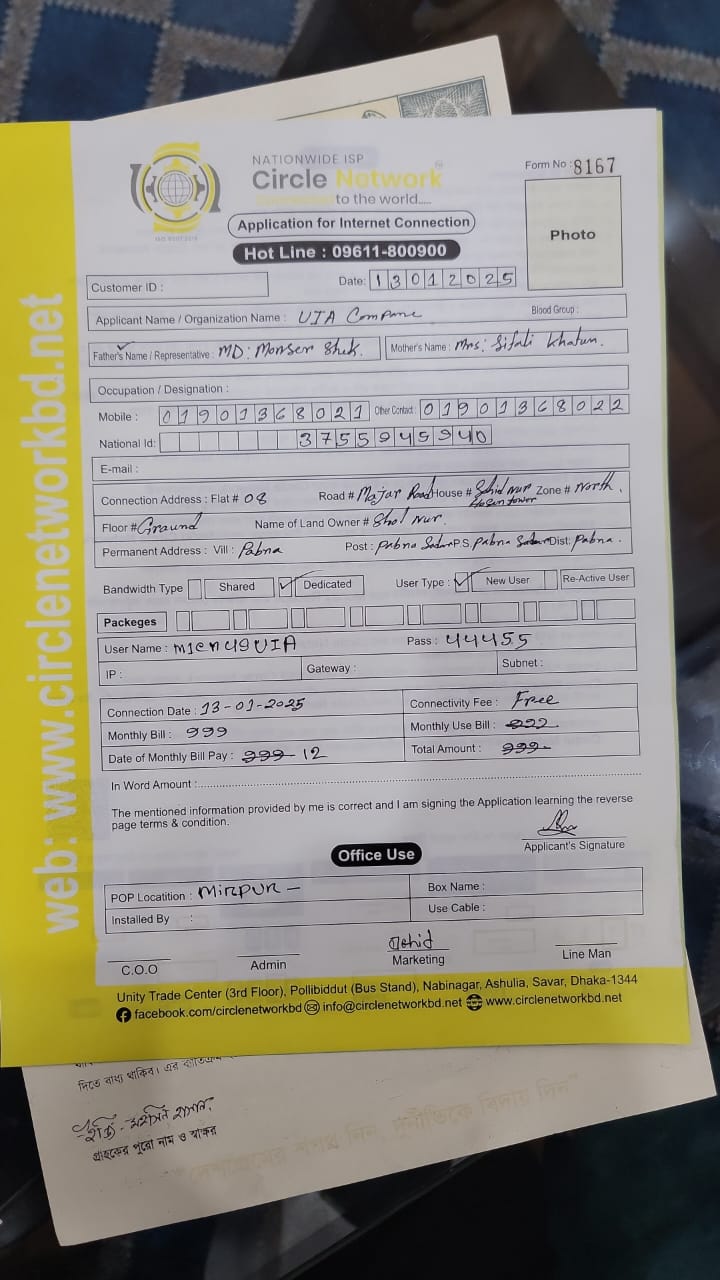 NATIONWIDE ISP
Circle Network
Connected to the world.....
ISO 9001:2015
Form No : 8167
Application for Internet Connection
Photo
Hot Line : 09611-800900
Customer ID :
Date: 13012025
Applicant Name / Organization Name : UIA Compane
Blood Group :
Father's Name / Representative : MD: Monser Shek.
Mother's Name : Mrs: Sifali Khatun.
Occupation / Designation :
Mobile : 01901368021 Other Contact : 01901368022
National Id: 3755945940
E-mail :
Connection Address : Flat # 08 Road # Majar Road House # Shid Nur Hosen tower Zone # North.
Floor # Graund Name of Land Owner # Shal Nur.
Permanent Address : Vill : Pabna Post : Pabna Sadar P.S. Pabna Sadar Dist: Pabna.
Bandwidth Type Shared Dedicated User Type : New User Re-Active User
Packeges
User Name : m1en49UIA Pass : 44455
IP : Gateway : Subnet :
Connection Date : 13-01-2025 Connectivity Fee : Free
Monthly Bill : 999 Monthly Use Bill : 999
Date of Monthly Bill Pay : 999 12 Total Amount : 999
In Word Amount :
The mentioned information provided by me is correct and I am signing the Application learning the reverse
page terms & condition.
Applicant's Signature
Office Use
POP Locatition : Mirpur - Box Name :
Installed By : Use Cable :
C.O.O Admin Marketing Line Man
Unity Trade Center (3rd Floor), Pollibiddut (Bus Stand), Nabinagar, Ashulia, Savar, Dhaka-1344
facebook.com/circlenetworkbd info@circlenetworkbd.net www.circlenetworkbd.net
web: www.circlenetworkbd.net
দিতে বাধ্য থাকিব। এর
গ্রাহকের পুরো নাম ও স্বাক্ষর